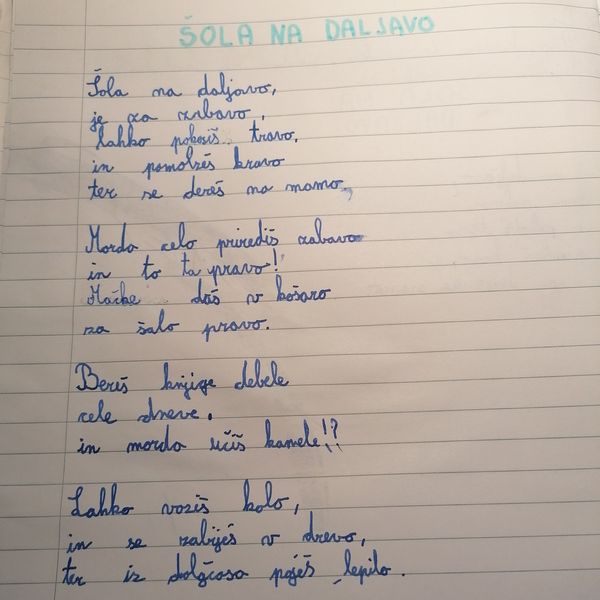 ŠOLA NA DALJAVO
Šola na daljavo,
je za zabavo,
lahko pokosiš travo,
in pomolzeš kravo
ter se dereš na mamo.
Morda celo prirediš zabavo
in to ta pravo!
Mačke daš v košaro
za šalo pravo.
Bereš knjige debele
cele dneve.
in morda učiš kamele!?
Lahko voziš kolo,
in se zabiješ v drevo,
ter iz dolgčasa poješ lepilo.